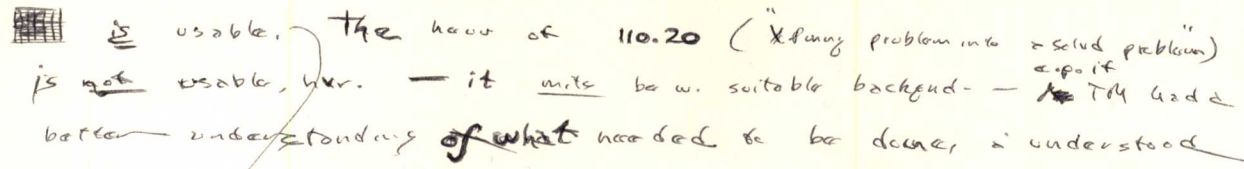 is usable. The heur of 110.20 ("Xforming problem into a solved problem")
is not usable, hwr. — it mits be w. suitable backgnd — e.g. if TM had a
better understanding of what needed to be done, & understood